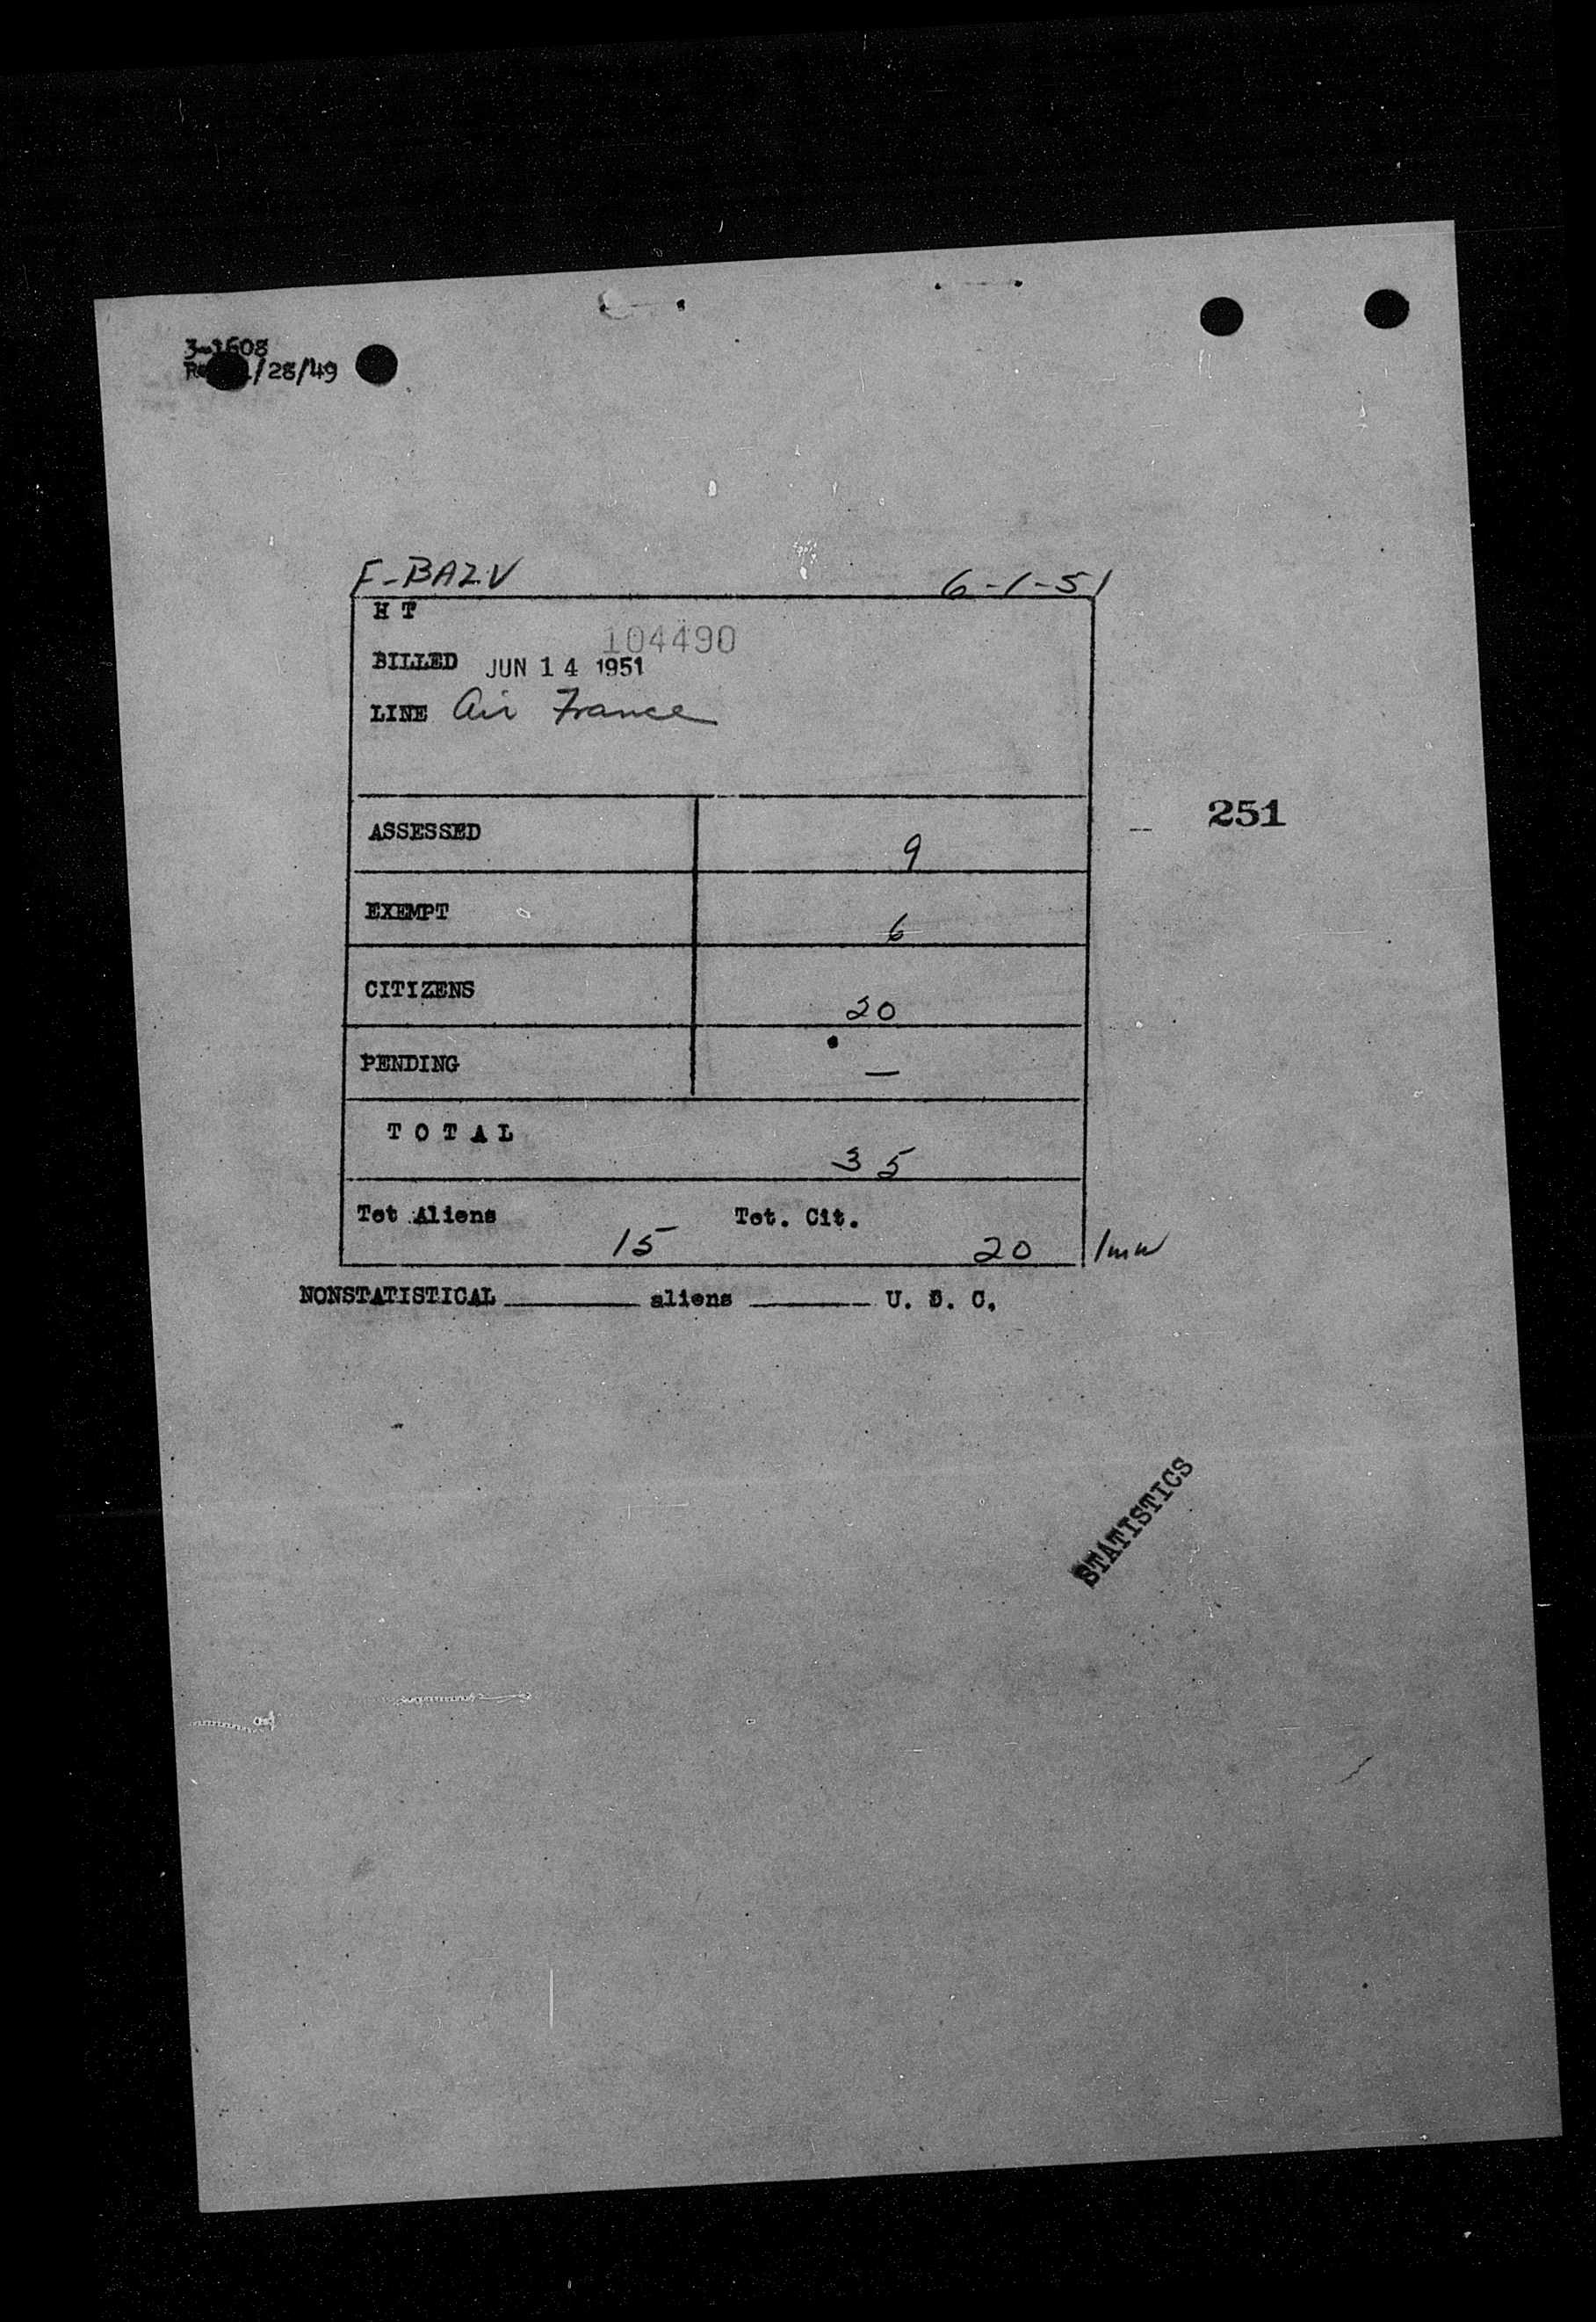 3-1608
/28/49
F-BAZV 6-1-51
H T
104490
BILLED JUN 14 1951
LINE Air France
ASSESSED 9
251
EXEMPT 6
CITIZENS 20
PENDING —
TOTAL 35
Tot Aliens 15 Tot. Cit. 20
NONSTATISTICAL ______ aliens ______ U. S. C.
STATISTICS